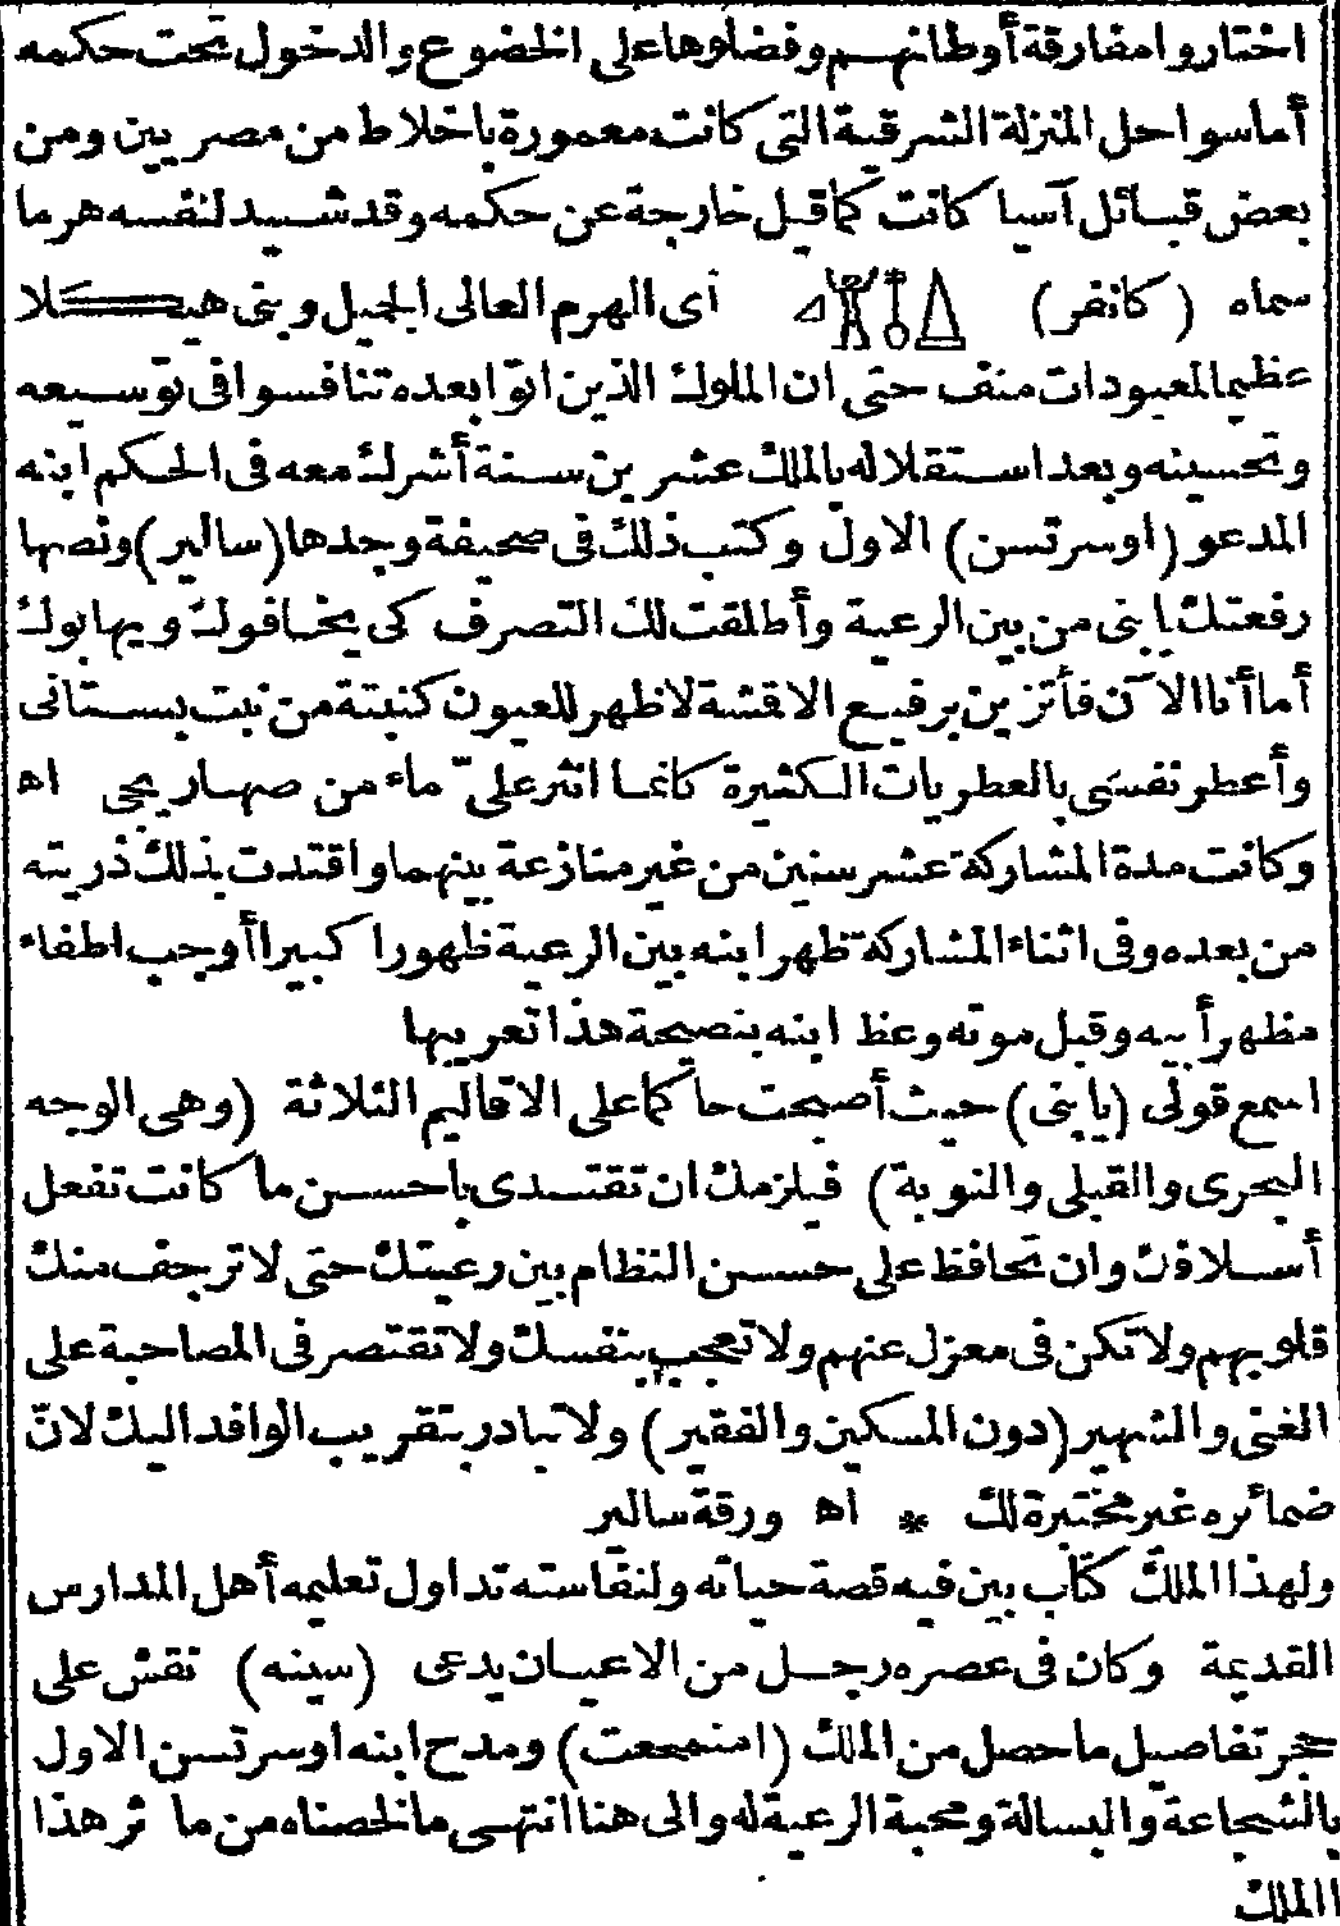 اختاروا مفارقة أوطانهم وفضلوها على الخضوع والدخول تحت حكمه
أما سواحل المنزلة الشرقية التى كانت معمورة باخلاط من مصريين ومن
بعض قبائل آسيا كانت كما قيل خارجة عن حكمه وقد شيد لنفسه هرما
سماه (كانفر) أى الهرم العالى الجميل وبنى هيكلا
عظيما لمعبودات منف حتى ان الملوك الذين اتوا بعده تنافسوا فى توسيعه
وتحسينه وبعد استقلاله بالملك عشرين سنة أشرك معه فى الحكم ابنه
المدعو (اوسرتسن) الاول وكتب ذلك فى صحيفة وجدها (سالير) ونصها
رفعتك يا بنى من بين الرعية وأطلقت لك التصرف كى يخافوك ويهابوك
أما أنا الآن فأتزين برفيع الاقشة لاظهر للعيون كنبتة من نبت بستانى
وأعطر نفسى بالعطريات الكثيرة كانما انثر علىّ ماء من صهاريجى اه
وكانت مدة المشاركة عشر سنين من غير منازعة بينهما واقتدت بذلك ذريته
من بعده وفى اثناء المشاركة ظهر ابنه بين الرعية ظهورا كبيرا أوجب اطفاء
مظهر أبيه وقبل موته وعظ ابنه بنصيحة هذا تعريبها
اسمع قولى (يا بنى) حيث أصبحت حاكما على الاقاليم الثلاثة (وهى الوجه
البحرى والقبلى والنوبة) فيلزمك ان تقتدى باحسن ما كانت تفعل
أسلافك وان تحافظ على حسن النظام بين رعيتك حتى لا ترجف منك
قلوبهم ولا تكن فى معزل عنهم ولا تعجب بنفسك ولا تقتصر فى المصاحبة على
الغنى والشهير (دون المسكين والفقير) ولا تبادر بتقريب الوافد اليك لانّ
ضمائره غير مختبرة لك * اه ورقة سالير
ولهذا الملك كتاب بين فيه قصة حياته ولنفاسته تداول تعليمه أهل المدارس
القديمة وكان فى عصره رجل من الاعيان يدعى (سينه) نقش على
حجر تفاصيل ما حصل من الملك (امنمحعت) ومدح ابنه اوسرتسن الاول
بالشجاعة والبسالة ومحبة الرعية له والى هنا انتهى ما لخصناه من ما ثر هذا
الملك